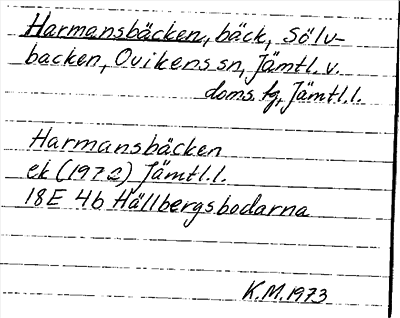 Harmansbäcken, bäck, Sölv-
backen, Ovikens sn, Jämtl. v.
doms. fg, Jämtl.l.
Harmansbäcken
ek (1972) Jämtl.l.
18E 4b Hällbergsbodarna
K.M. 1973